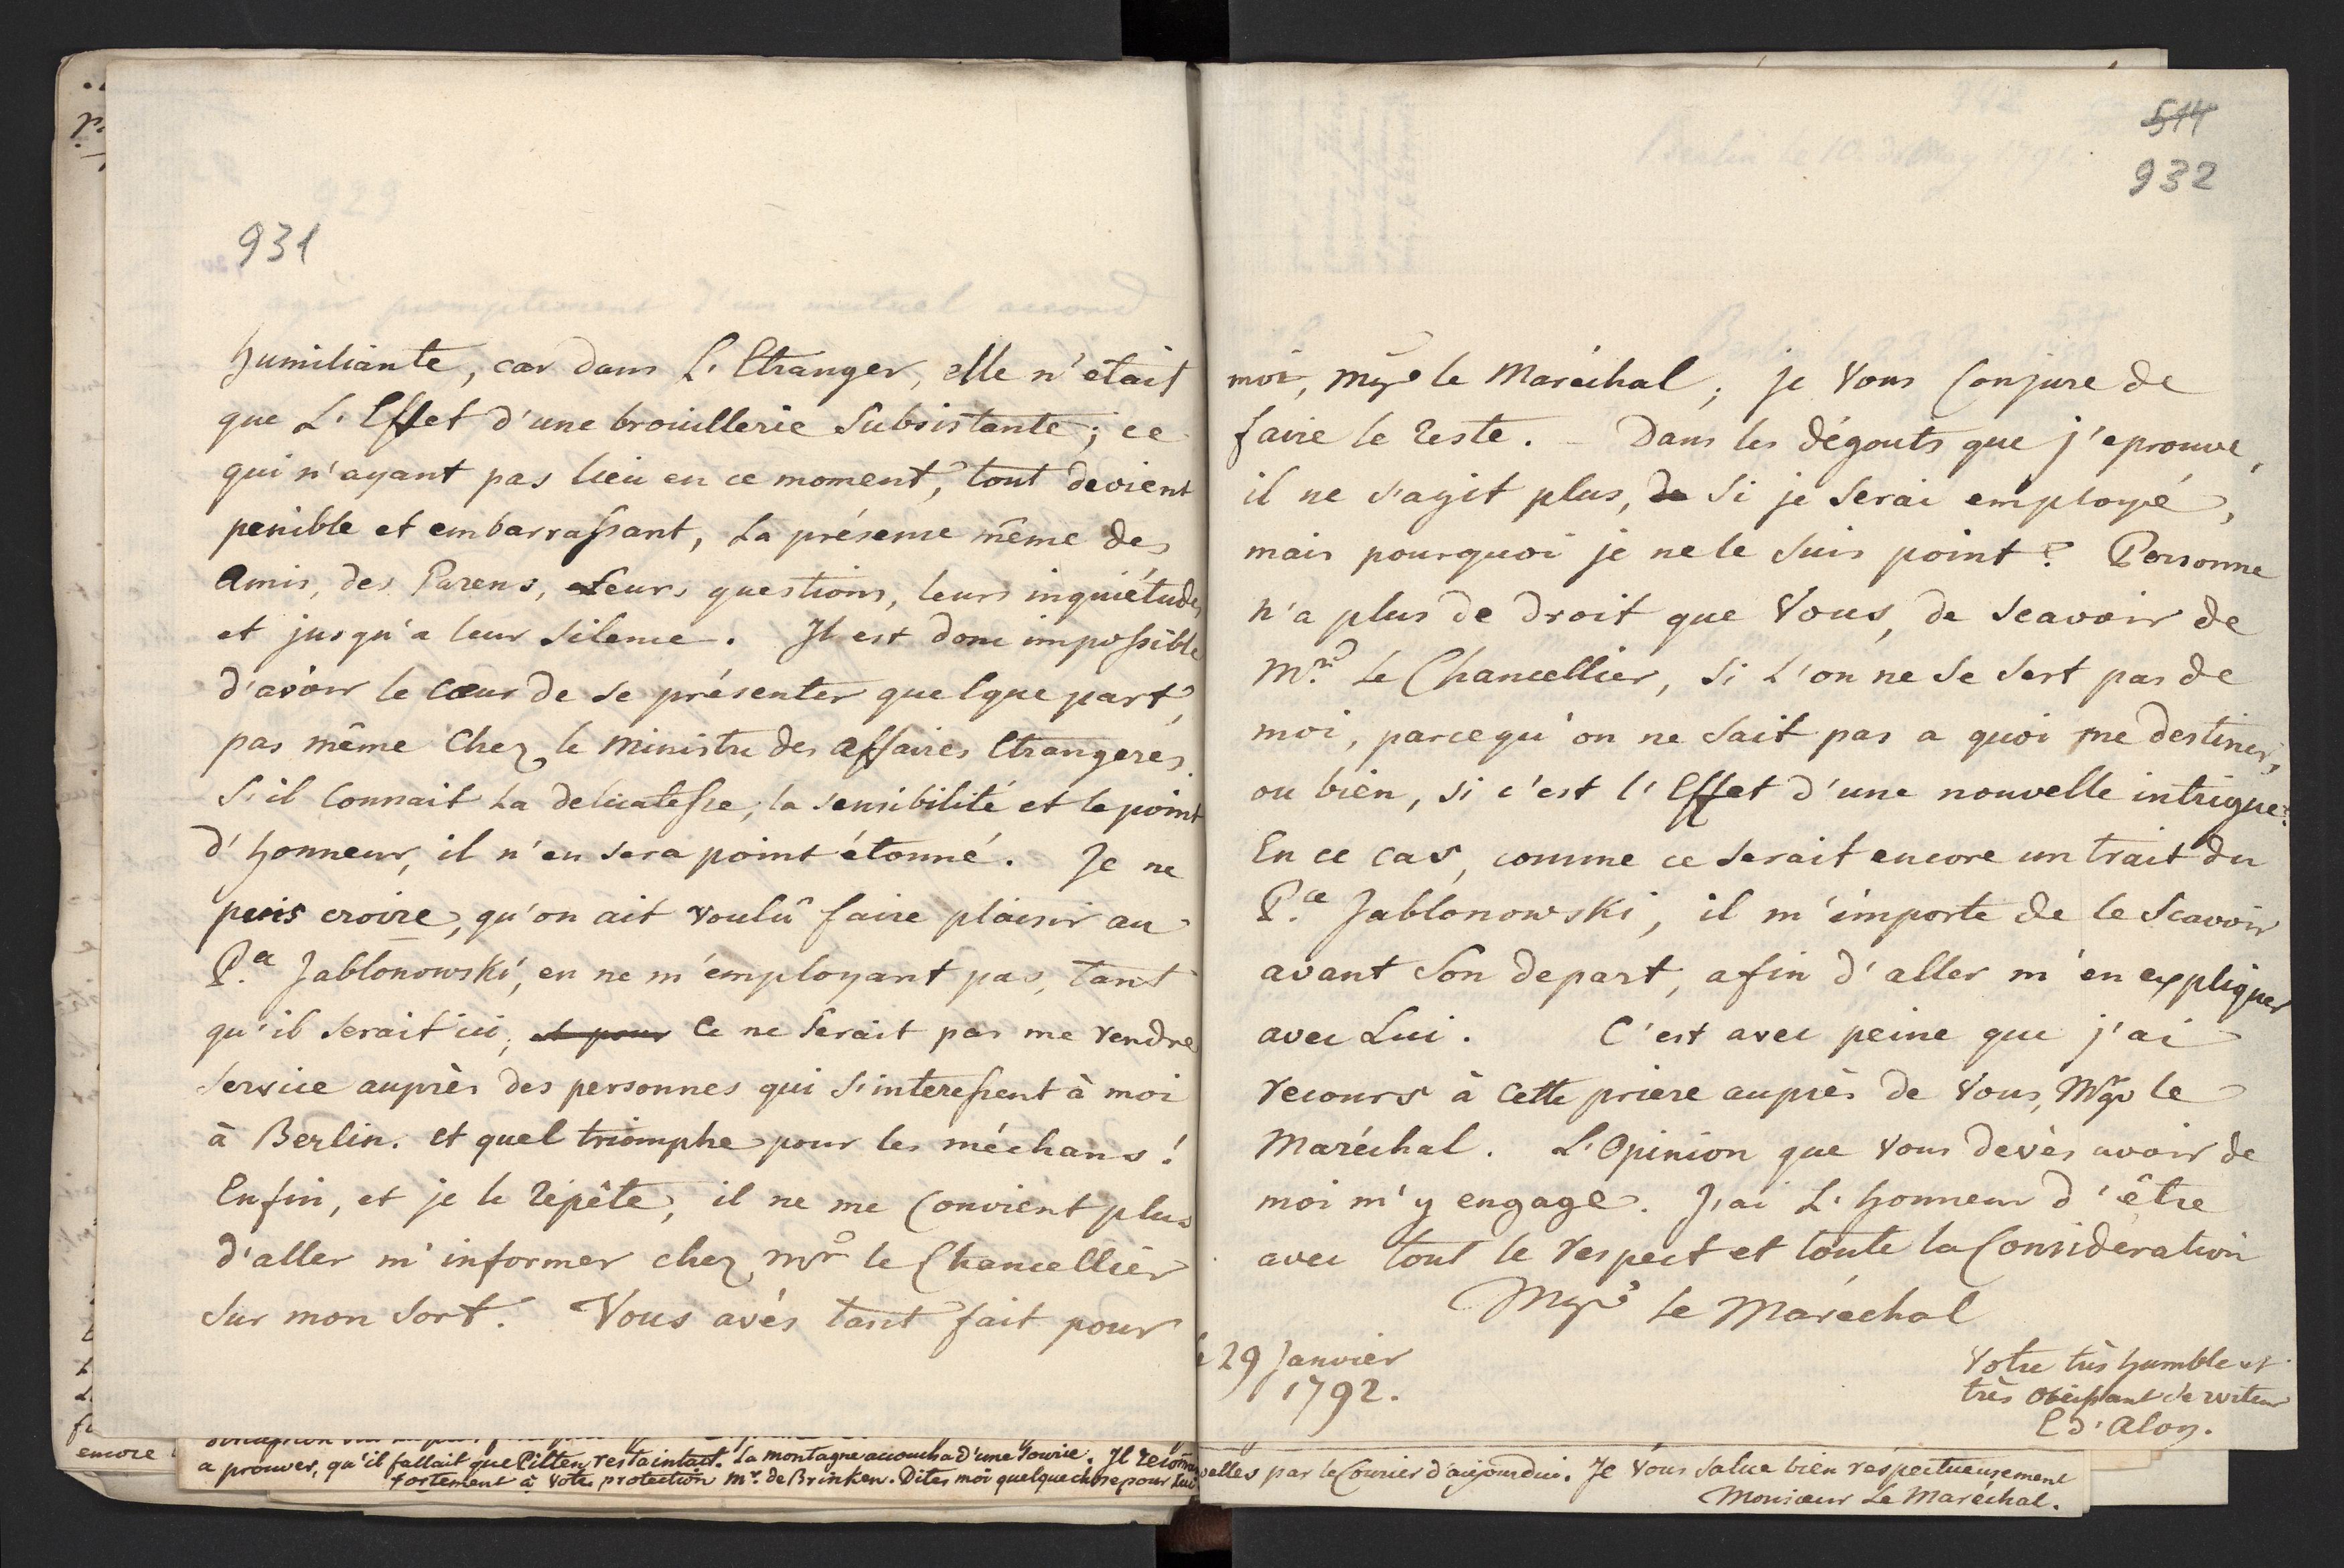 931
humiliante, car dans L'Etranger, elle n'etait
que L'Effet d'une brouillerie Subsistante; ce
qui n'ayant pas lieu en ce moment, tout devient
penible et embarrassant, La présence même des
Amis, des Parens, Leurs questions, leurs inquiétudes,
et jusqu'a leur Silence. Il est donc impossible
d'avoir le Cœur de se présenter quelque part,
pas même Chez le Ministre des Affaires Etrangeres.
S'il Connait La delicatesse, la sensibilité et le point
d'honneur, il n'en sera point étonné. Je ne
puis croire, qu'on ait voulû faire plaisir au
P.ce Jablonowski, en ne m'employant pas, tant
qu'il serait ici, et pour Ce ne serait pas me rendre
service auprès des personnes qui s'interessent à moi
à Berlin. et quel triomphe pour les méchans!
Enfin, et je le répête, il ne me Convient plus
d'aller m'informer chez Mr le Chancellier
sur mon sort. Vous avés tant fait pour
514
932
moi, Mgr le Maréchal; je Vous Conjure de
faire le reste. – Dans les dégouts que j'eprouve,
il ne s'agit plus, de Si je serai employé,
mais pourquoi je ne le suis point? Personne
n'a plus de droit que Vous, de scavoir de
Mr. Le Chancellier, si l'on ne se sert pas de
moi, parcequ'on ne sait pas a quoi me destiner,
ou bien, si c'est l'Effet d'une nouvelle intrigue?
En ce cas, comme ce serait encore un trait du
P.ce Jablonowski, il m'importe de le scavoir
avant son depart, afin d'aller m'en expliquer
avec Lui. C'est avec peine que j'ai
recours à Cette priere auprès de Vous, Mgr le
Maréchal. L'Opinion que vous devès avoir de
moi m'y engage. J'ai L'honneur d'être
avec tout le respect et toute la Consideration
Mgr le Marechal
29 Janvier
1792.
Votre très humble et
très obeissant serviteur
E d'Aloy.
encore
a prouver, qu'il fallait que Pilten restaintact. La montagne accoucha d'une Souris. Il
fortement à Votre protection Mr. de Brinken. Dites moi quelque chose pour Lui
par le Courier d'aujourdui. Je Vous Salue bien respectueusement
Monsieur Le Maréchal.